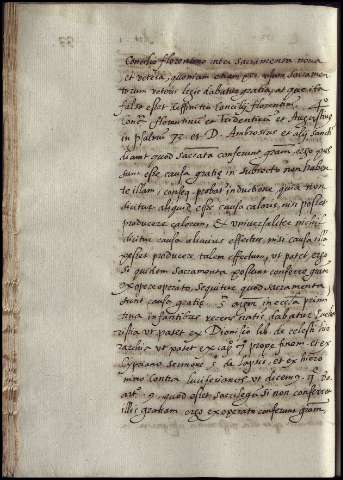 Concilio florentino inter sacramenta noua
et vetera, quoniam etiam per usum sacramen
torum veteris legis dabatur gratia, atque ita
falsa esset diffinitio Concilij florentini. 4º
Conc. florentinus et tridentinus et Augustinus
in psalmo 73 et D. Ambrosius et alij sancti
dicunt quod sacramenta conferunt gram. ergo pos
sunt esse causa gratiae in subiecto non haben
te illam; conseq. probat inductione, quia non
dicitur aliquid esse causa caloris, nisi possit
producere calorem, et vniversaliter nichil
dicitur causa alicuius effectus, nisi causa illa
possit producere talem effectum, vt patet, ergo
si quidem sacramenta possunt conferre gram
ex opere operato, sequitur quod sacramenta
sunt causa gratiae. 5 autem in ecclesia primi
tiua infantibus recens natis dabatur Eucha
ristia vt patet ex Dionisio lib. de celesti hie
rarchia vt patet ex cap. prope finem. et ex
Cypriano sermone 5 de lapsis, et ex hiero
nimo contra luciferianos vt dicemus q. 80
art. 9. quod esset sacrilegum si non conferret
illis gratiam ergo ex opere operato conferunt gram,